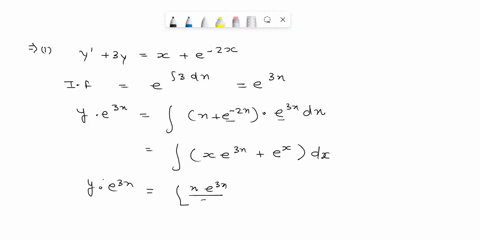 ⇒(1) y' + 3y = x + e^{-2x}
I.f = e^{∫3 dn} = e^{3n}
y · e^{3n} = ∫ (n + e^{-2n}) · e^{3n} dn
= ∫ (x e^{3n} + e^{x}) dx
y · e^{3n} = [ n e^{3n} / -